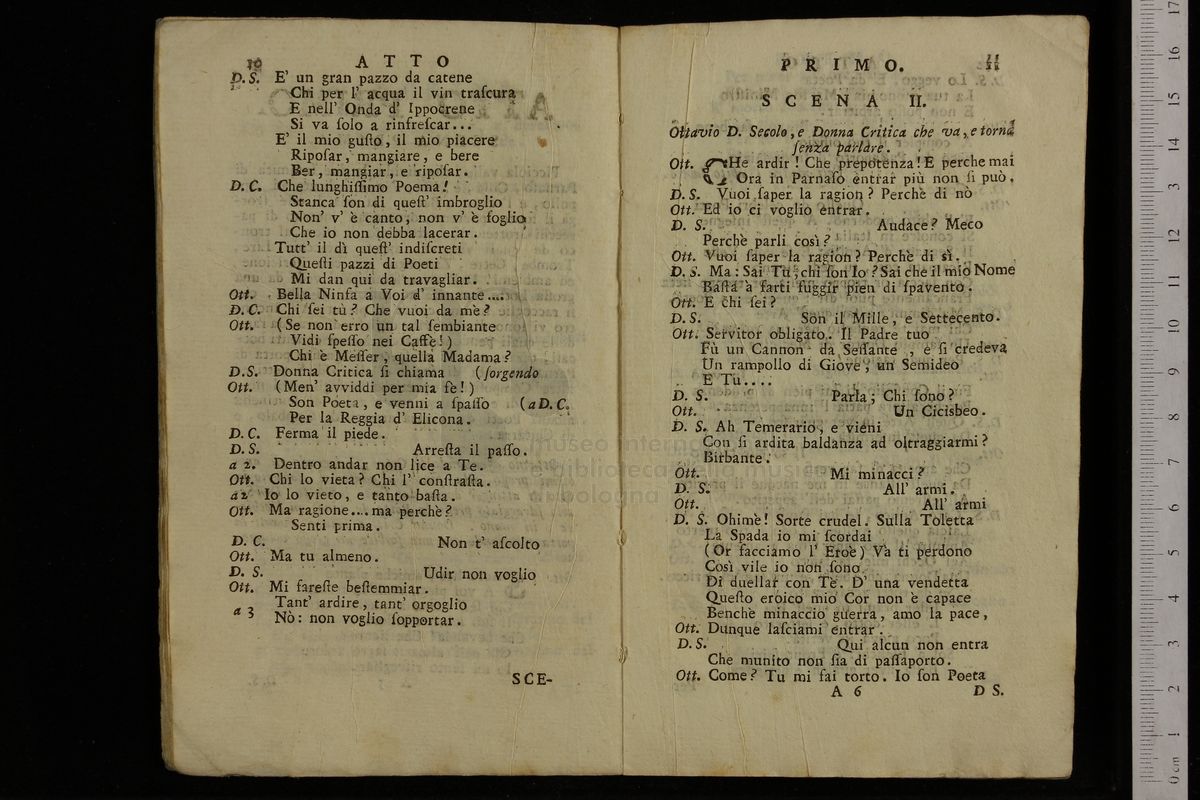 10 ATTO
D. S. E' un gran pazzo da catene
Chi per l' acqua il vin traſcura
E nell' Onda d' Ippocrene
Si va ſolo a rinfreſcar...
E' il mio guſto, il mio piacere
Ripoſar, mangiare, e bere
Ber, mangiar, e ripoſar.
D. C. Che lunghiſſimo Poema!
Stanca ſon di queſt' imbroglio
Non' v' è canto, non v' è foglio
Che io non debba lacerar.
Tutt' il dì queſt' indiſcreti
Queſti pazzi di Poeti
Mi dan qui da travagliar.
Ott. Bella Ninfa a Voi d' innante....
D. C. Chi ſei tù? Che vuoi da me?
Ott. (Se non erro un tal ſembiante
Vidi ſpeſſo nei Caffè!)
Chi è Meſſer, quella Madama?
D.S. Donna Critica ſi chiama (ſorgendo
Ott. (Men' avviddi per mia fè!)
Son Poeta, e venni a ſpaſſo (a D. C.
Per la Reggia d' Elicona.
D. C. Ferma il piede.
D. S. Arreſta il paſſo.
a 2. Dentro andar non lice a Te.
Ott. Chi lo vieta? Chi l' conſtraſta.
a 2 Io lo vieto, e tanto baſta.
Ott. Ma ragione....ma perchè?
Senti prima.
D. C. Non t' aſcolto
Ott. Ma tu almeno.
D. S. Udir non voglio
Ott. Mi fareſte beſtemmiar.
a 3 Tant' ardire, tant' orgoglio
Nò: non voglio ſopportar.
SCE-
PRIMO. 11
SCENA II.
Ottavio D. Secolo, e Donna Critica che va, e torna
ſenza parlare.
Ott. CHe ardir! Che prepotenza! E perche mai
Ora in Parnaſo entrar più non ſi può.
D. S. Vuoi ſaper la ragion? Perchè di nò
Ott. Ed io ci voglio entrar.
D. S. Audace? Meco
Perchè parli così?
Ott. Vuoi ſaper la ragion? Perchè di sì.
D. S. Ma: Sai Tu, chi ſon Io? Sai che il mio Nome
Baſta a farti fuggir pien di ſpavento.
Ott. E chi ſei?
D. S. Son il Mille, e Settecento.
Ott. Servitor obligato. Il Padre tuo
Fù un Cannon da Seſſante, e ſi credeva
Un rampollo di Giove, un Semideo
E Tu....
D. S. Parla; Chi ſono?
Ott. Un Cicisbeo.
D. S. Ah Temerario, e vieni
Con ſi ardita baldanza ad oltraggiarmi?
Birbante.
Ott. Mi minacci?
D. S. All' armi.
Ott. All' armi
D. S. Ohimè! Sorte crudel. Sulla Toletta
La Spada io mi ſcordai
(Or facciamo l' Eroè) Va ti perdono
Così vile io non ſono
Di duellar con Tè. D' una vendetta
Queſto eroico mio Cor non è capace
Benchè minaccio guerra, amo la pace,
Ott. Dunque laſciami entrar.
D. S. Qui alcun non entra
Che munito non ſia di paſſaporto.
Ott. Come? Tu mi fai torto. Io ſon Poeta
A 6 D S.
museo internazionale
e biblioteca della musica
di bologna